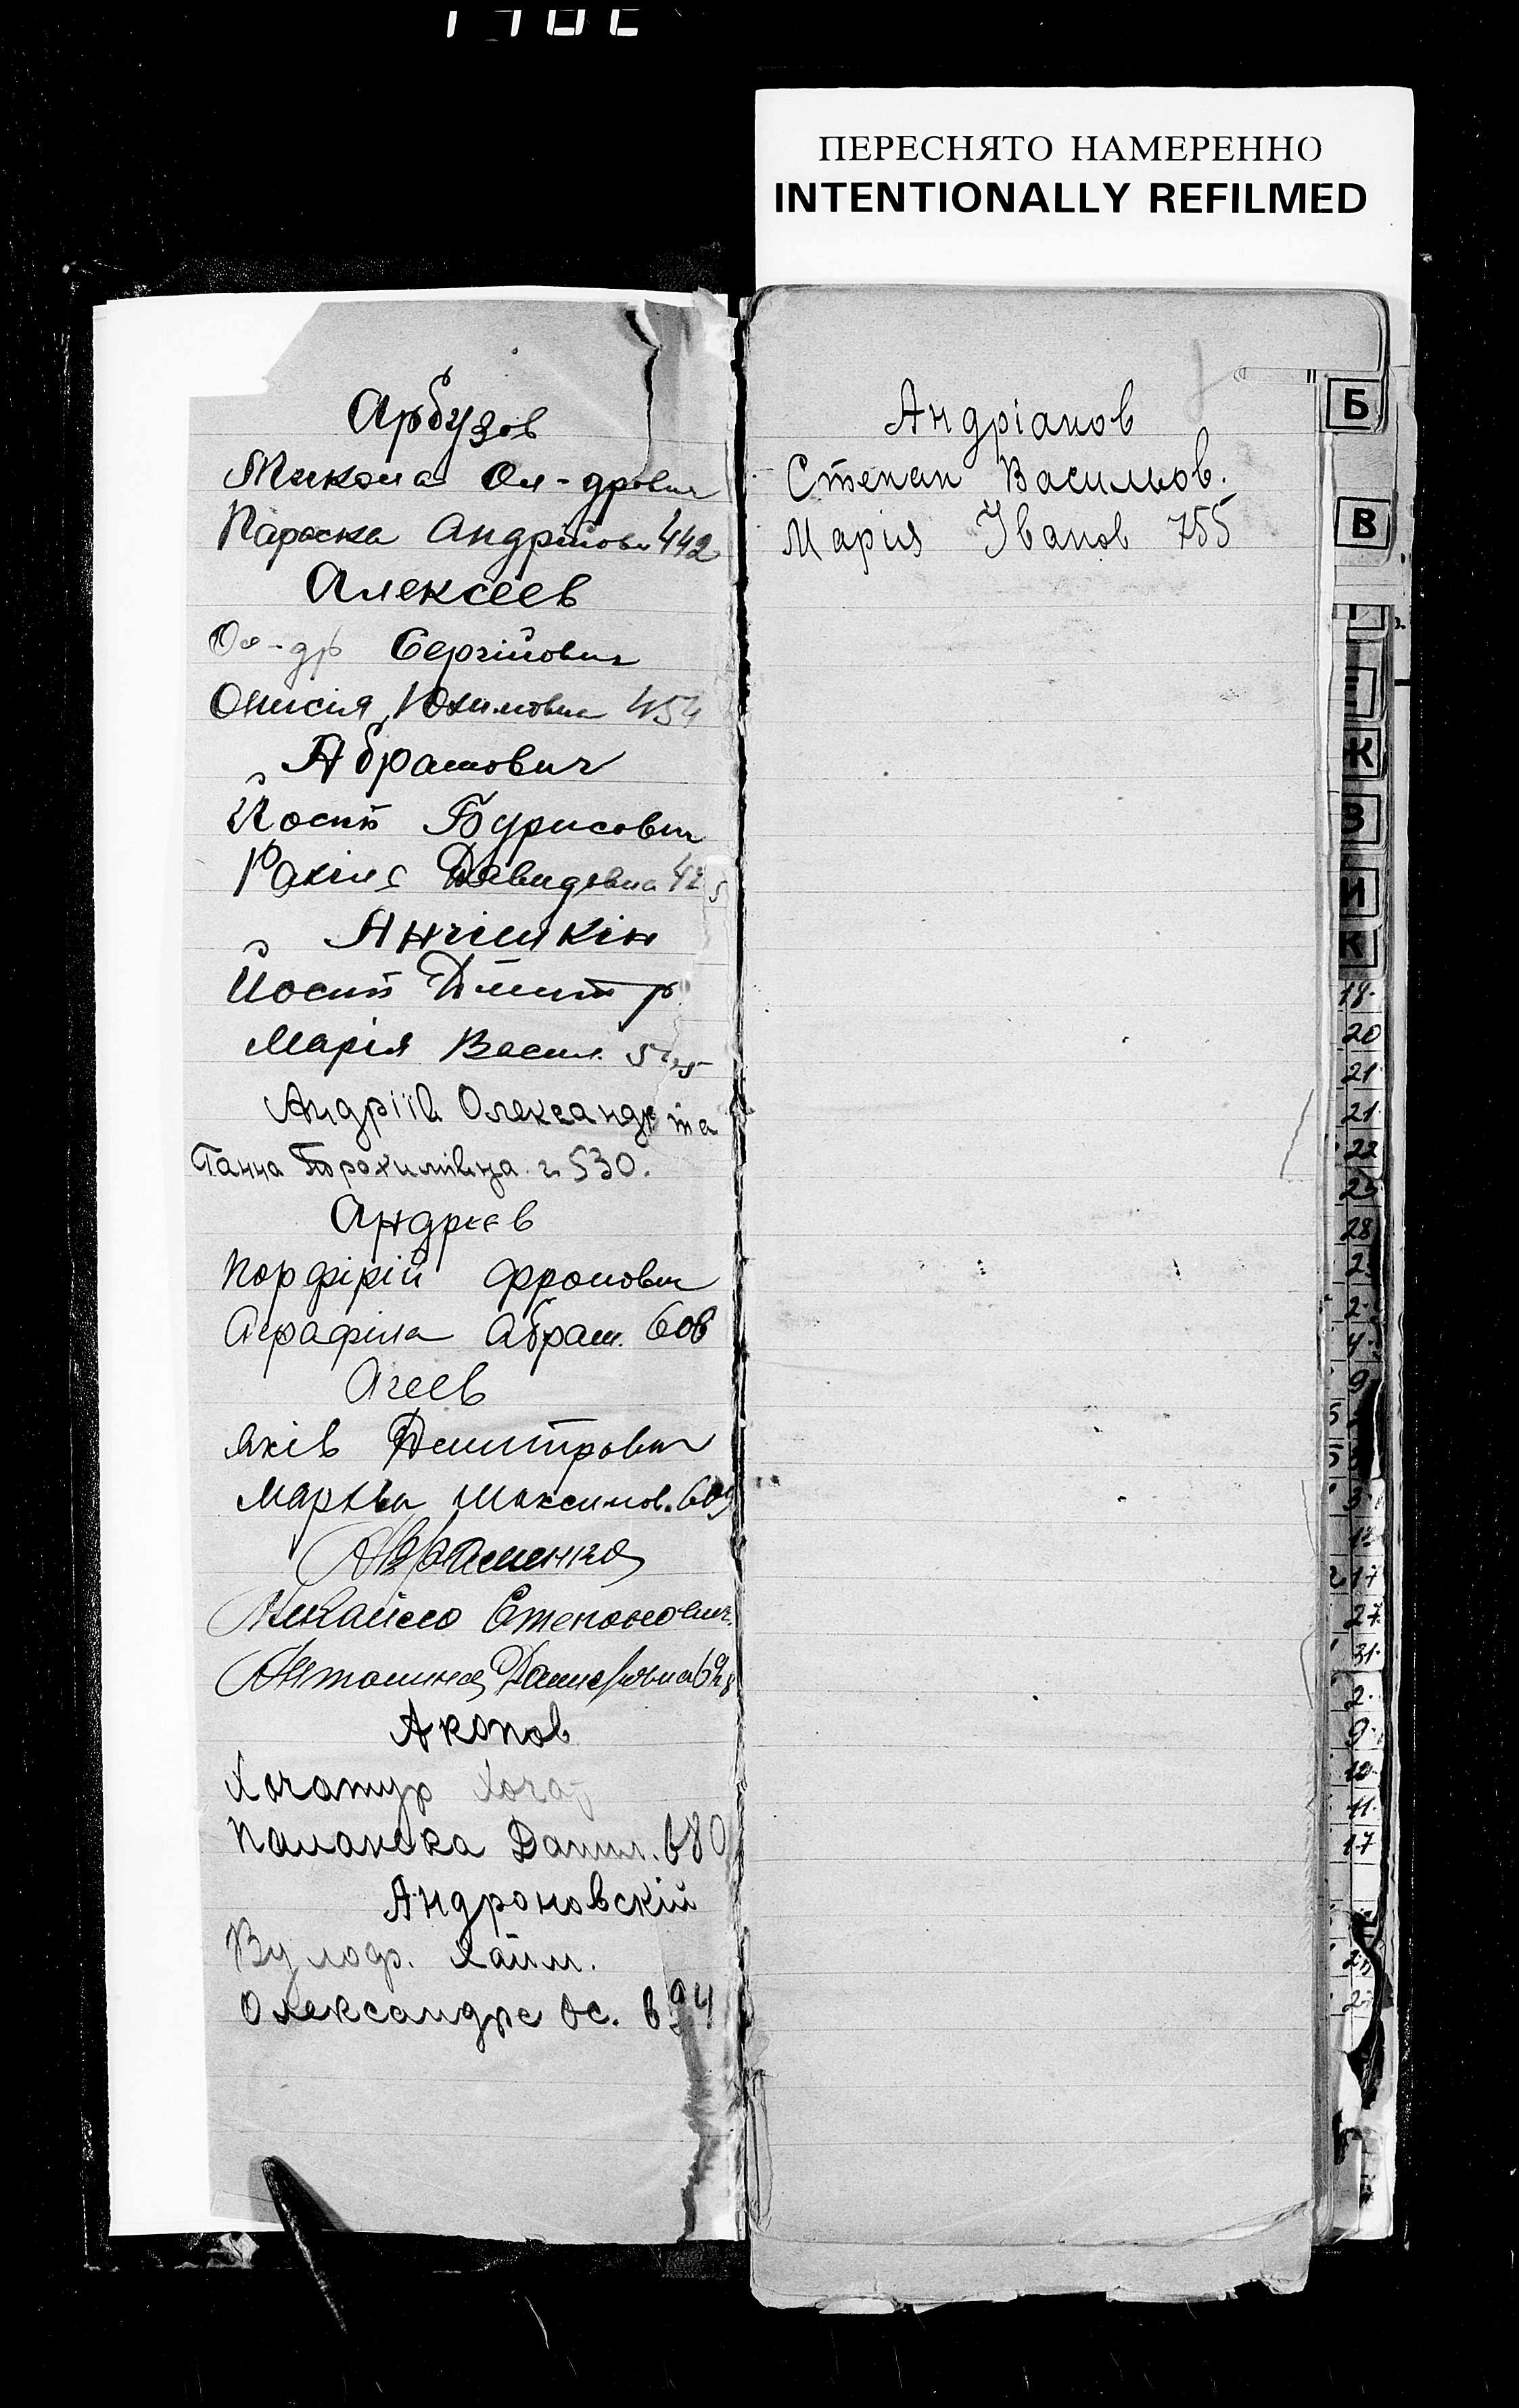 ПЕРЕСНЯТО НАМЕРЕННО
INTENTIONALLY REFILMED
Арбузов
Микола Ол-дрович
Параска Андрійовн 442
Алексеев
Ол-др Сергійович
Онисія Юхимовна 454
Абрамович
Йосип Бурисович
Рахіля Давидовна 42
Анчішкін
Йосип Дмитр
Марія Васил.
Андріїв Олександр та
Ганна 530.
Андрєєв
Порфірій Фролович
Абрам. 606
Агеев
Яків Дмитрович
Марфа Максимов. 609
Авраменко
Михайло Степанович.
Антонина
Акопов
Хачатур Хача
Паланска Данил. 680
Андроновскій
Вулодр. Хаїм.
Олександра Ос. 694
Андріанов
Степан Васильов.
Марія Іванов 755
Б
В
Г
Ж
З
И
К
18.
20
21
21
22
25
28
2
2
4
9
3
12
17
27
31
2
9
10
11
17